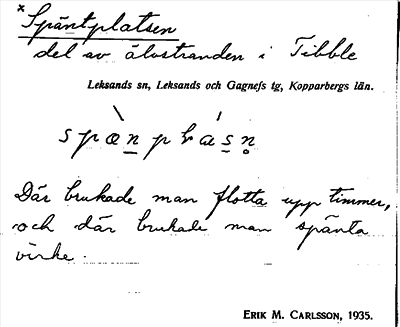 × Späntplatsen
del av älvstranden i Tibble
Leksands sn, Leksands och Gagnefs tg, Kopparbergs län.
Där brukade man flotta upp timmer,
och där brukade man spänta
virke.
ERIK M. CARLSSON, 1935.